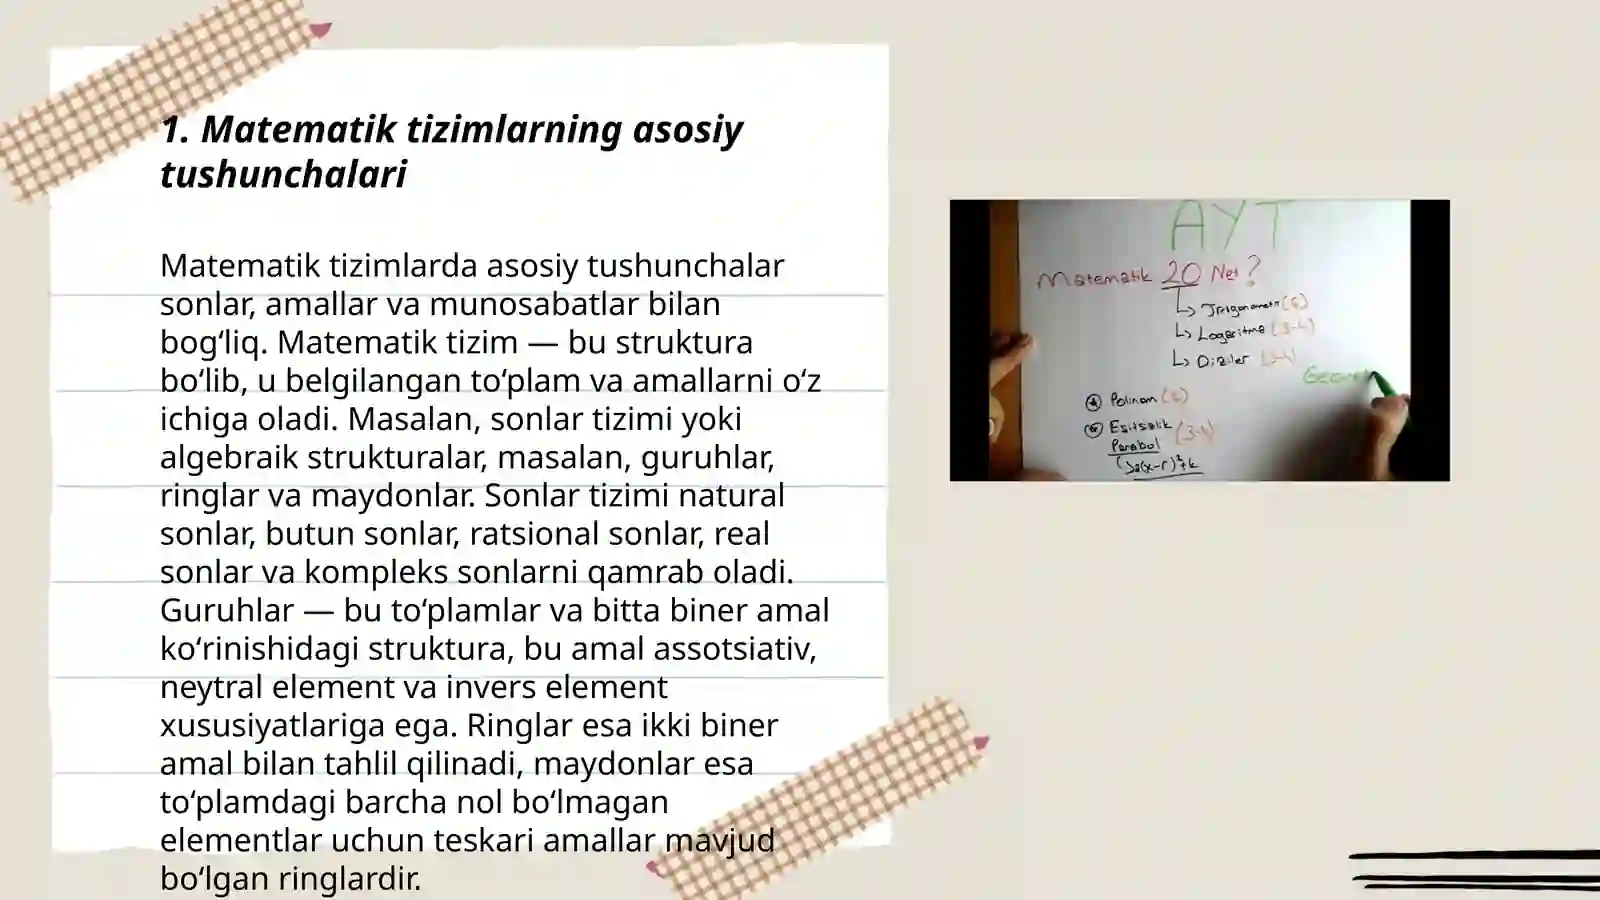 1. Matematik tizimlarning asosiy
tushunchalari
Matematik tizimlarda asosiy tushunchalar
sonlar, amallar va munosabatlar bilan
bog‘liq. Matematik tizim — bu struktura
bo‘lib, u belgilangan to‘plam va amallarni o‘z
ichiga oladi. Masalan, sonlar tizimi yoki
algebraik strukturalar, masalan, guruhlar,
ringlar va maydonlar. Sonlar tizimi natural
sonlar, butun sonlar, ratsional sonlar, real
sonlar va kompleks sonlarni qamrab oladi.
Guruhlar — bu to‘plamlar va bitta biner amal
ko‘rinishidagi struktura, bu amal assotsiativ,
neytral element va invers element
xususiyatlariga ega. Ringlar esa ikki biner
amal bilan tahlil qilinadi, maydonlar esa
to‘plamdagi barcha nol bo‘lmagan
elementlar uchun teskari amallar mavjud
bo‘lgan ringlardir.
AYT
Matematik 20 Net?
Trigonometri
Logaritma (3-4)
Diziler
Polinom
Esitsizlik (3-4)
Parabol